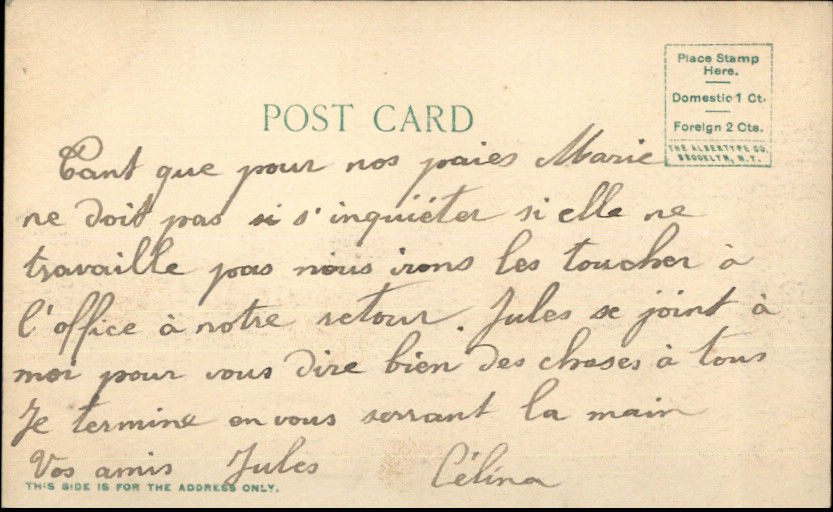 Place Stamp
Here.
Domestic 1 Ct.
Foreign 2 Cts.
THE ALBERTYPE CO.
BROOKLYN, N.Y.
POST CARD
Tant que pour nos paies Marie
ne doit pas si s'inquiéter si elle ne
travaille pas nous irons les toucher à
l'office à notre retour. Jules se joint à
moi pour vous dire bien des choses à tous
Je termine en vous serrant la main
Vos amis Jules Célina
THIS SIDE IS FOR THE ADDRESS ONLY.